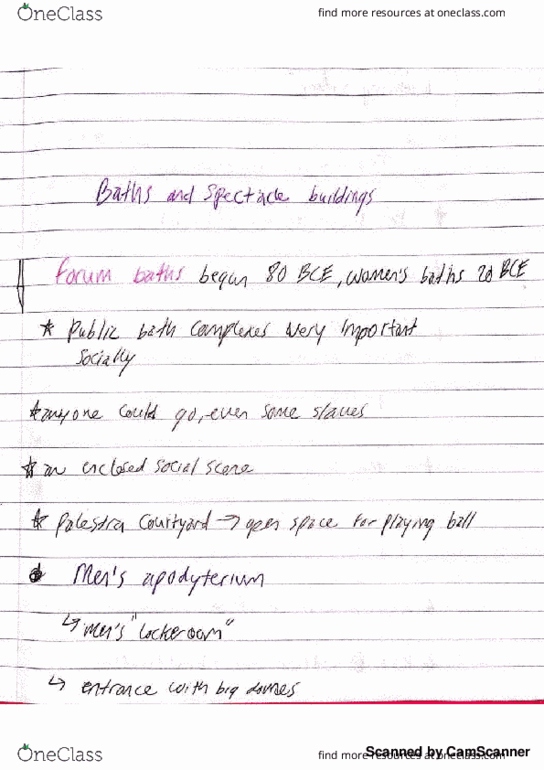 OneClass
find more resources at oneclass.com
Baths and Spectacle buildings
Forum baths begun 80 BCE, women's baths 20 BCE
* Public bath complexes very important
socially
* anyone could go, even some slaves
* an enclosed social scene
* Palestra Courtyard → open space for playing ball
Men's apodyterium
↳ men's "lockeroom"
↳ entrance with big domes
OneClass
find more resources at oneclass.com
Scanned by CamScanner